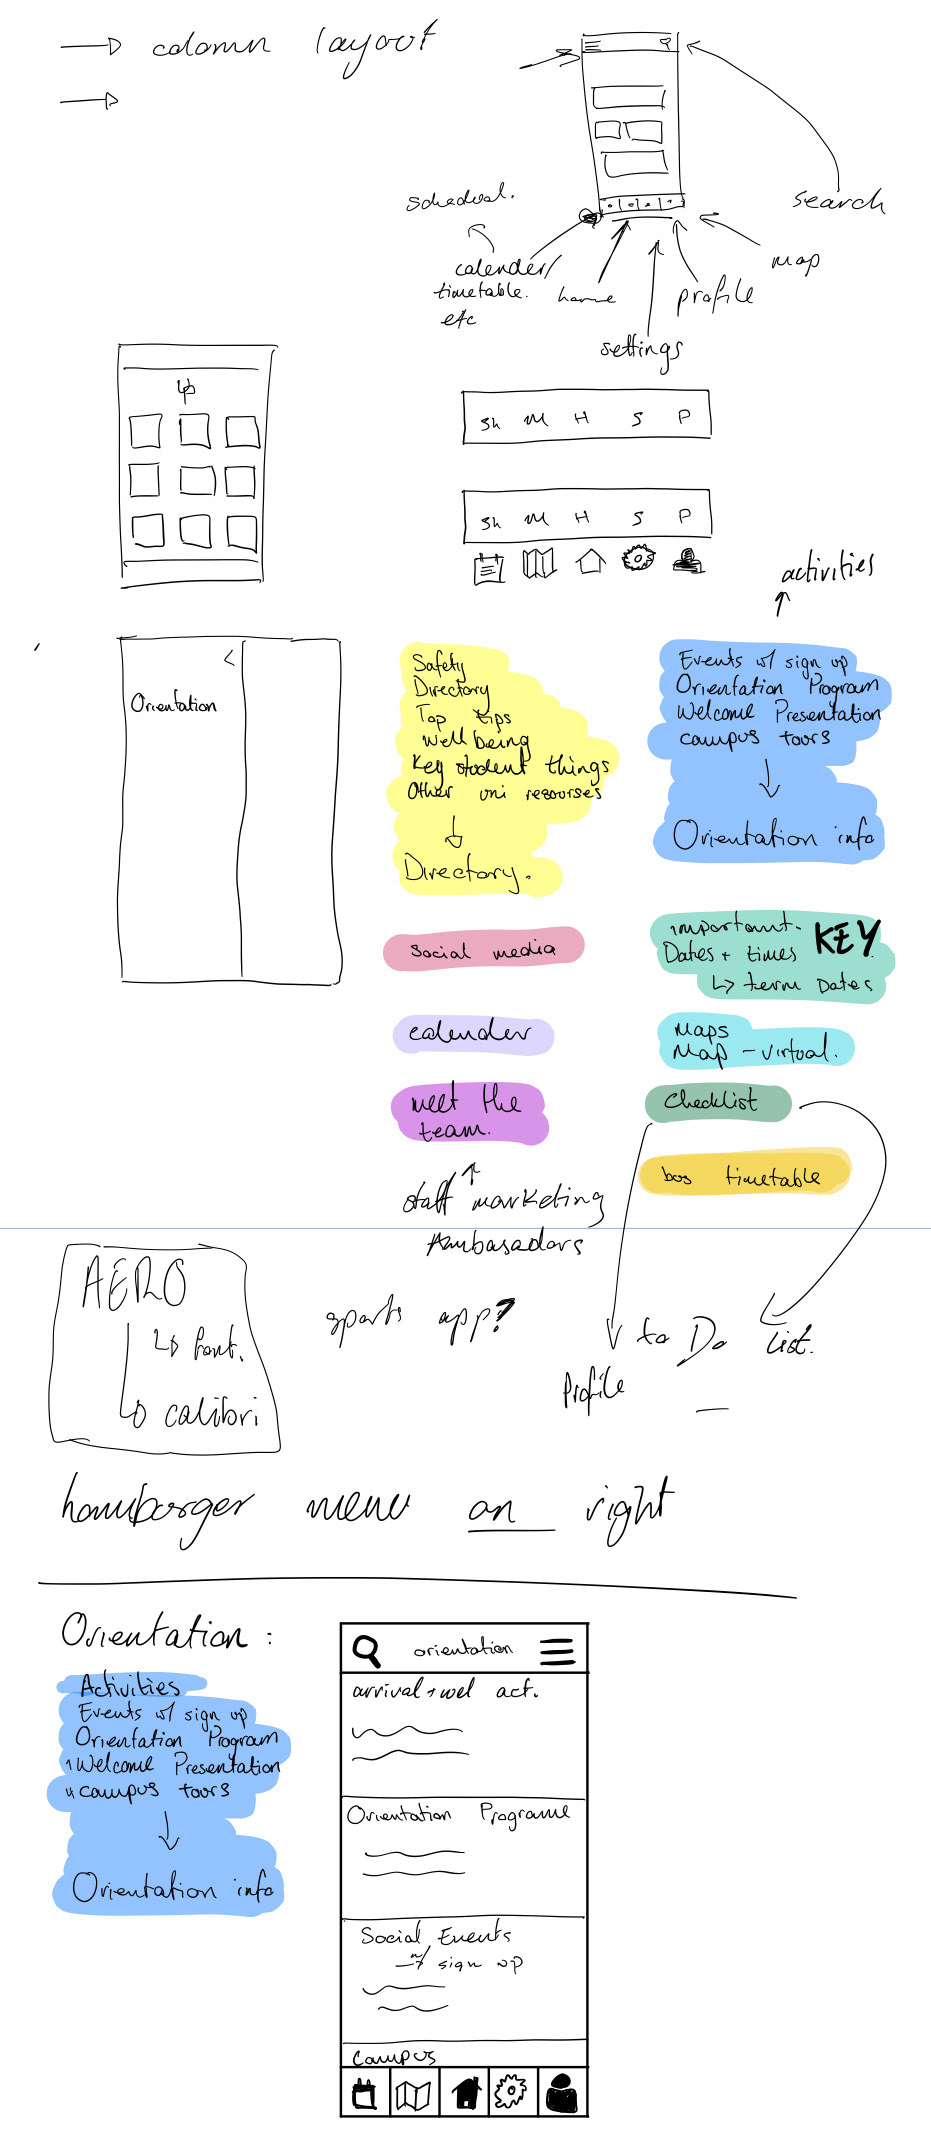 colomn layout
search
schedual.
calender/
timetable.
etc
home
profile
map
settings
Sh M H S P
Sh M H S P
activities
Orientation
Safety
Directory
Top tips
well being
Key student things
Other uni resourses
Directory.
Events w/ sign up
Orientation Program
Welcome Presentation
campus tours
Orientation info
social media
important
Dates + times KEY
term Dates
calender
Maps
Map - virtual.
meet the
team.
Checklist
bus timetable
staff marketing
Ambasadors
AERO
font.
calibri
sports app?
to Do list.
Profile
hamburger menu on right
Orientation :
Activities
Events w/ sign up
Orientation Program
Welcome Presentation
campus tours
Orientation info
orientation
arrival + wel act.
Orientation Programe
Social Events
w/ sign up
Campus